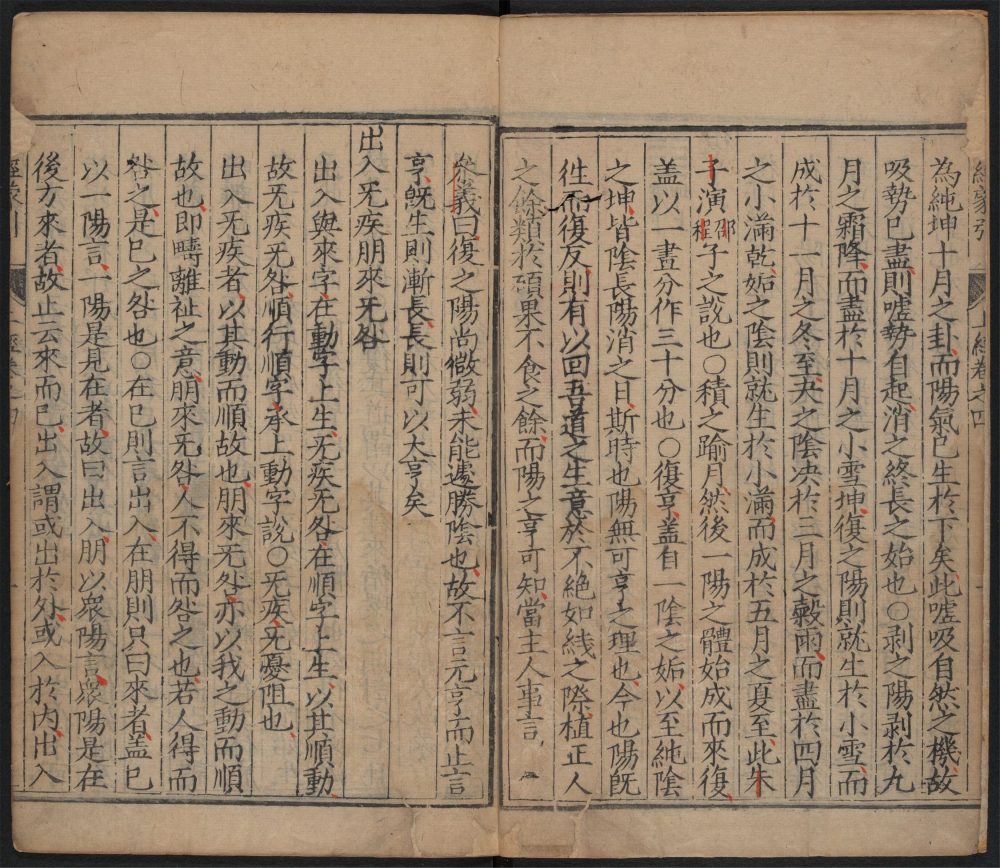 經蒙引 上經卷之四
為純坤十月之卦而陽氣已生於下矣此噓吸自然之機故
吸勢已盡則噓勢自起消之終長之始也〇剥之陽剥於九
月之霜降而盡於十月之小雪坤復之陽則就生於小雪而
成於十一月之冬至夬之陰決於三月之穀雨而盡於四月
之小滿乾姤之陰則就生於小滿而成於五月之夏至此朱
子演邵程子之說也〇積之踰月然後一陽之體始成而來復
盖以一晝分作三十分也〇復亨盖自一陰之姤以至純陰
之坤皆陰長陽消之日斯時也陽無可亨之理也今也陽既
徃而復反則有以回吾道之生意於不絶如綫之際植正人
之餘類於碩果不食之餘而陽之亨可知當主人事言
衆義曰復之陽尚微弱未能遽勝陰也故不言元亨而止言
亨既生則漸長長則可以大亨矣
出入无疾朋來无咎
出入與來字在動字上生无疾无咎在順字上生以其順動
故无疾无咎順行順字承上動字說〇无疾无憂阻也
出入无疾者以其動而順故也朋來无咎亦以我之動而順
故也即疇離祉之意朋來无咎人不得而咎之也若人得而
咎之是巳之咎也〇在巳則言出入在朋則只曰來者盖巳
以一陽言一陽是見在者故曰出入朋以衆陽言衆陽是在
後方來者故止云來而已出入謂或出於外或入於内出入